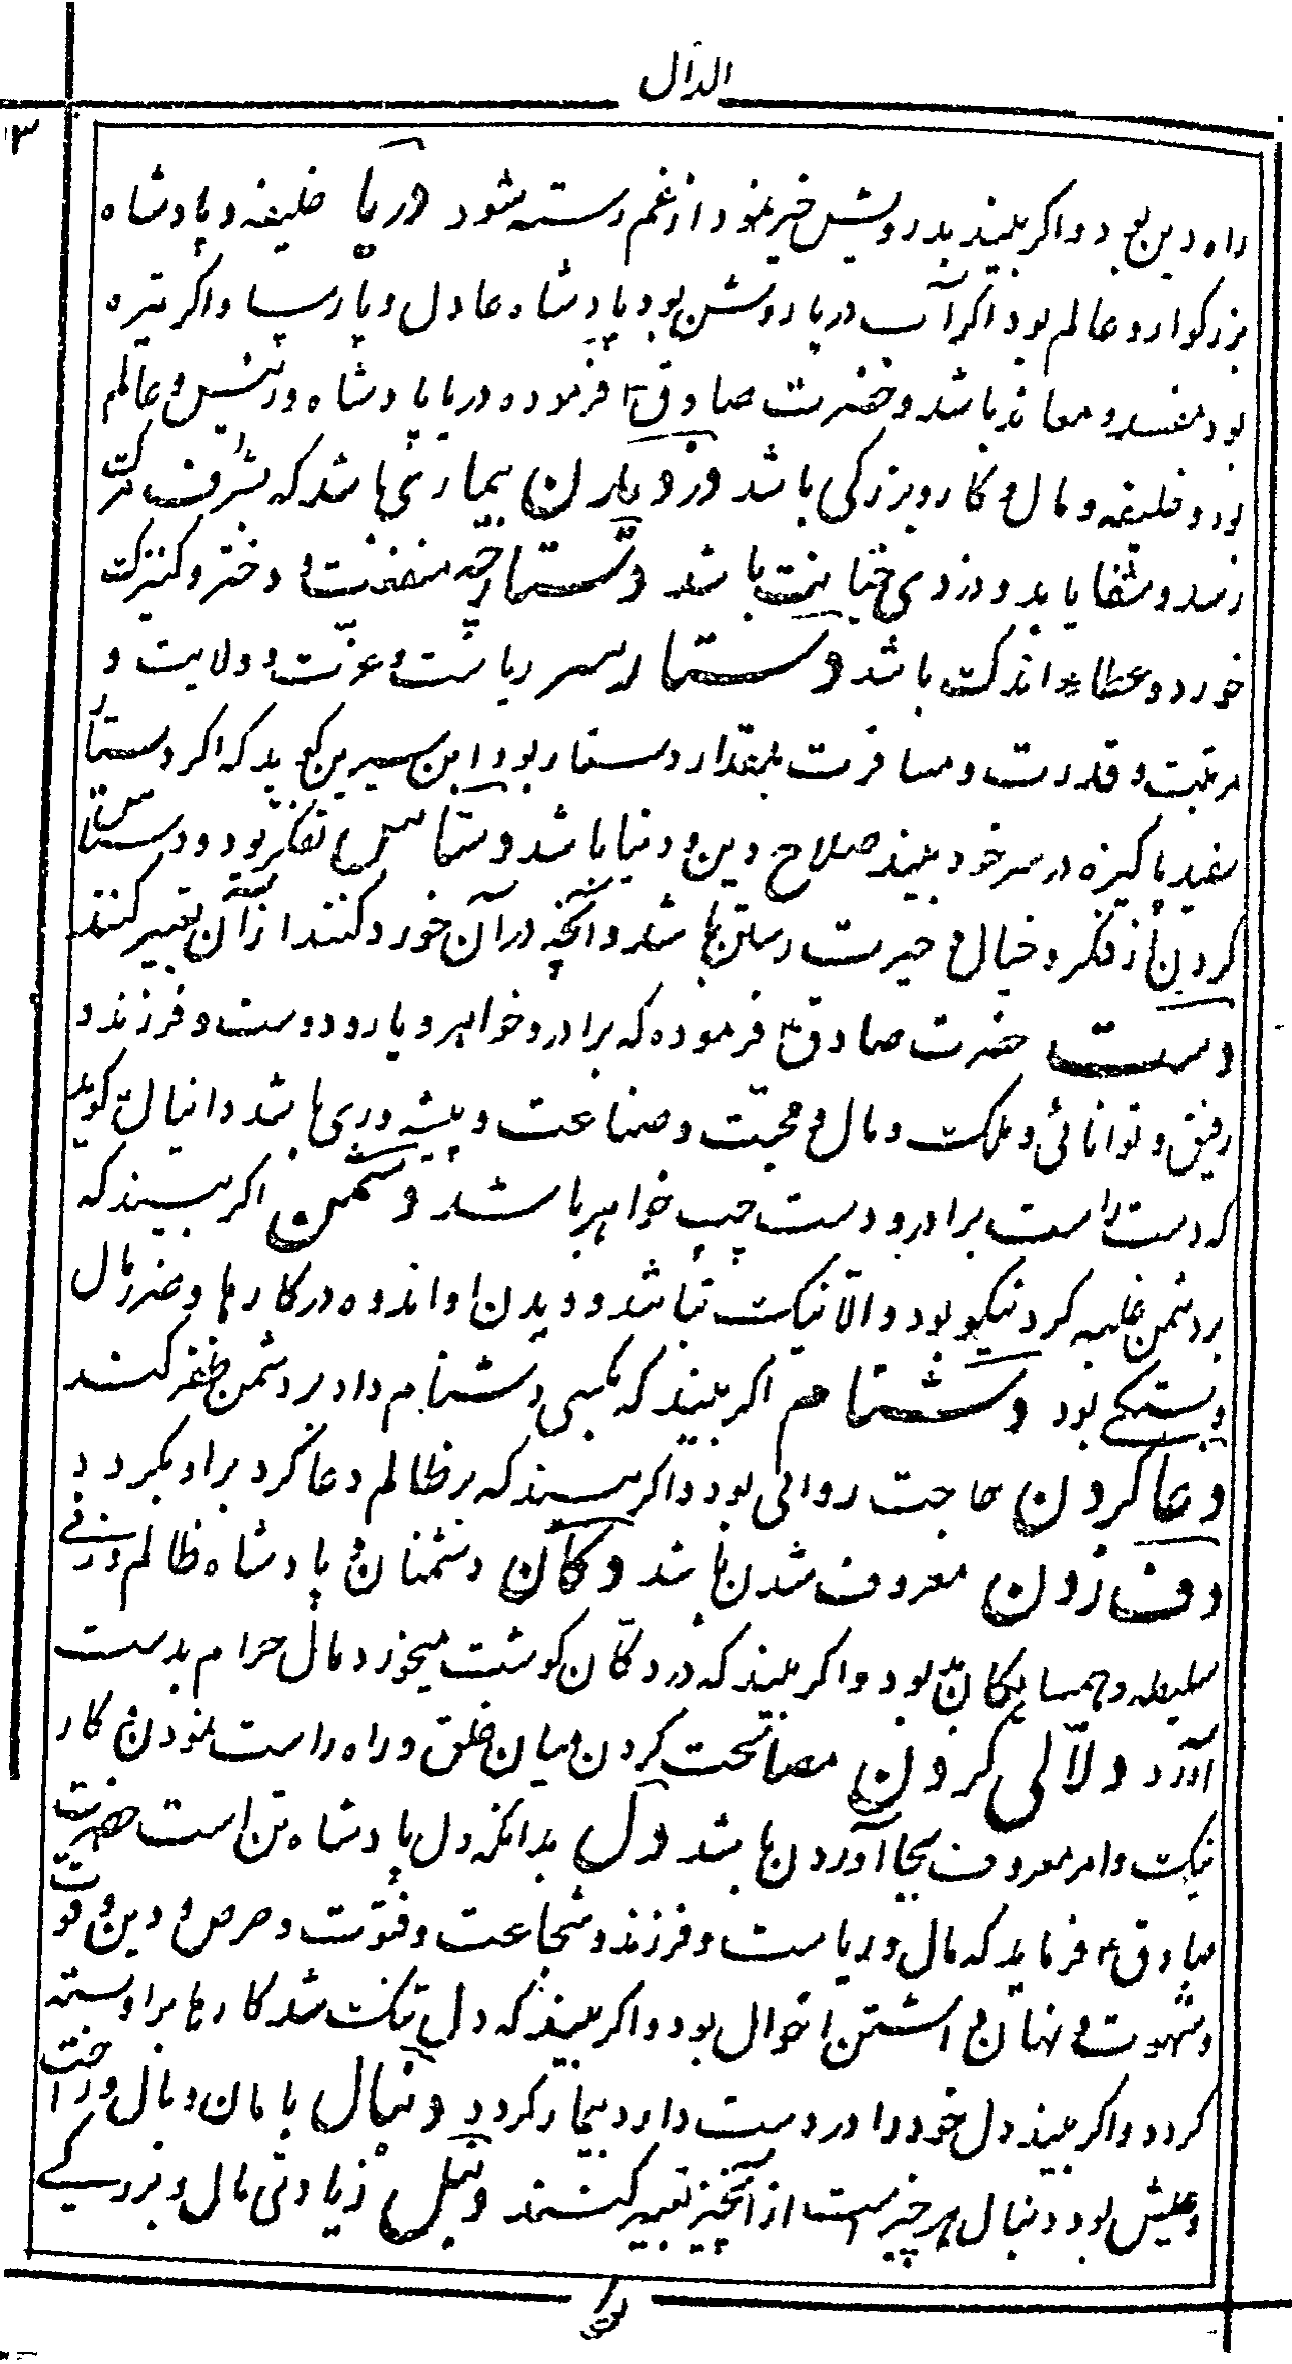 الدال
۳
راه دین بود و اکر بیند بدرویش خیر نمود از غم رسته شود دریا خلیفه و پادشاه
بزرکوار و عالم بود اکر آب دریا روشن بود پادشاه عادل و پارسا و اکر تیره
بود مفسد و معاند باشد و حضرت صادق ع فرموده دریا پادشاه و رئیس و عالم
بود و خلیفه و مال و کار و بزرکی باشد دزد دیدن بیماری باشد که بشرف مرک
رسد و شفا یابد و دزدی خیانت باشد دستارچه منفعت و دختر و کنیزک
خورد و عطاء اندک باشد دستار سر ریاست و عزت و ولایت و
مرتبت و قدرت و مسافرت بمقدار دستار بود ابن سیرین کوید که اکر دستار
سفید پاکیزه در سر خود بیند صلاح دین و دنیا باشد دستاس تفکر بود و دستاس
کردن از فکر و خیال و حیرت رستن باشد و آنچه در آن خورد کنند از آن تعبیر کنند
دست حضرت صادق ع فرموده که برادر و خواهر و یار و دوست و فرزند و
رفیق و توانائی و ملک و مال و محبت و صناعت و پیشه وری باشد دانیال ع کوید
که دست راست برادر و دست چپ خواهر باشد دشمن اکر بیند که
بر دشمن غلبه کرد نیکو بود و الا نیک نباشد و دیدن او اندوه در کارها و ضرر مال
و بستکی بود دشنام اکر بیند که بکسی دشنام داد بر دشمن ظفر کند
دعا کردن حاجت روائی بود و اکر بیند که بر ظالم دعا کرد براو بکردد
دف زدن معروف شدن باشد دکان دشمنان و پادشاه ظالم و زنی
سلیطه و همسایکان بد بود و اکر بیند که در دکان کوشت میخورد مال حرام بدست
آورد دلالی کردن مصالحت کردن میان خلق و راه راست نمودن کار
نیک و امر معروف بجا آوردن باشد دل بدانکه دل پادشاه تن است حضرت
صادق ع فرماید که مال و ریاست و فرزند و شجاعت و فتوت و حرص و دین و قوت
و شهوت و نهان داشتن احوال بود و اکر بیند که دل تنک شد کارها براو بسته
کردد و اکر بیند دل خود را در دست دارد بیمار کردد دنبال پایان و مال و راحت
و عیش بود و دنبال هر چیز است از آنچیز تعبیر کنند دنبل زیادتی مال و بزرکی